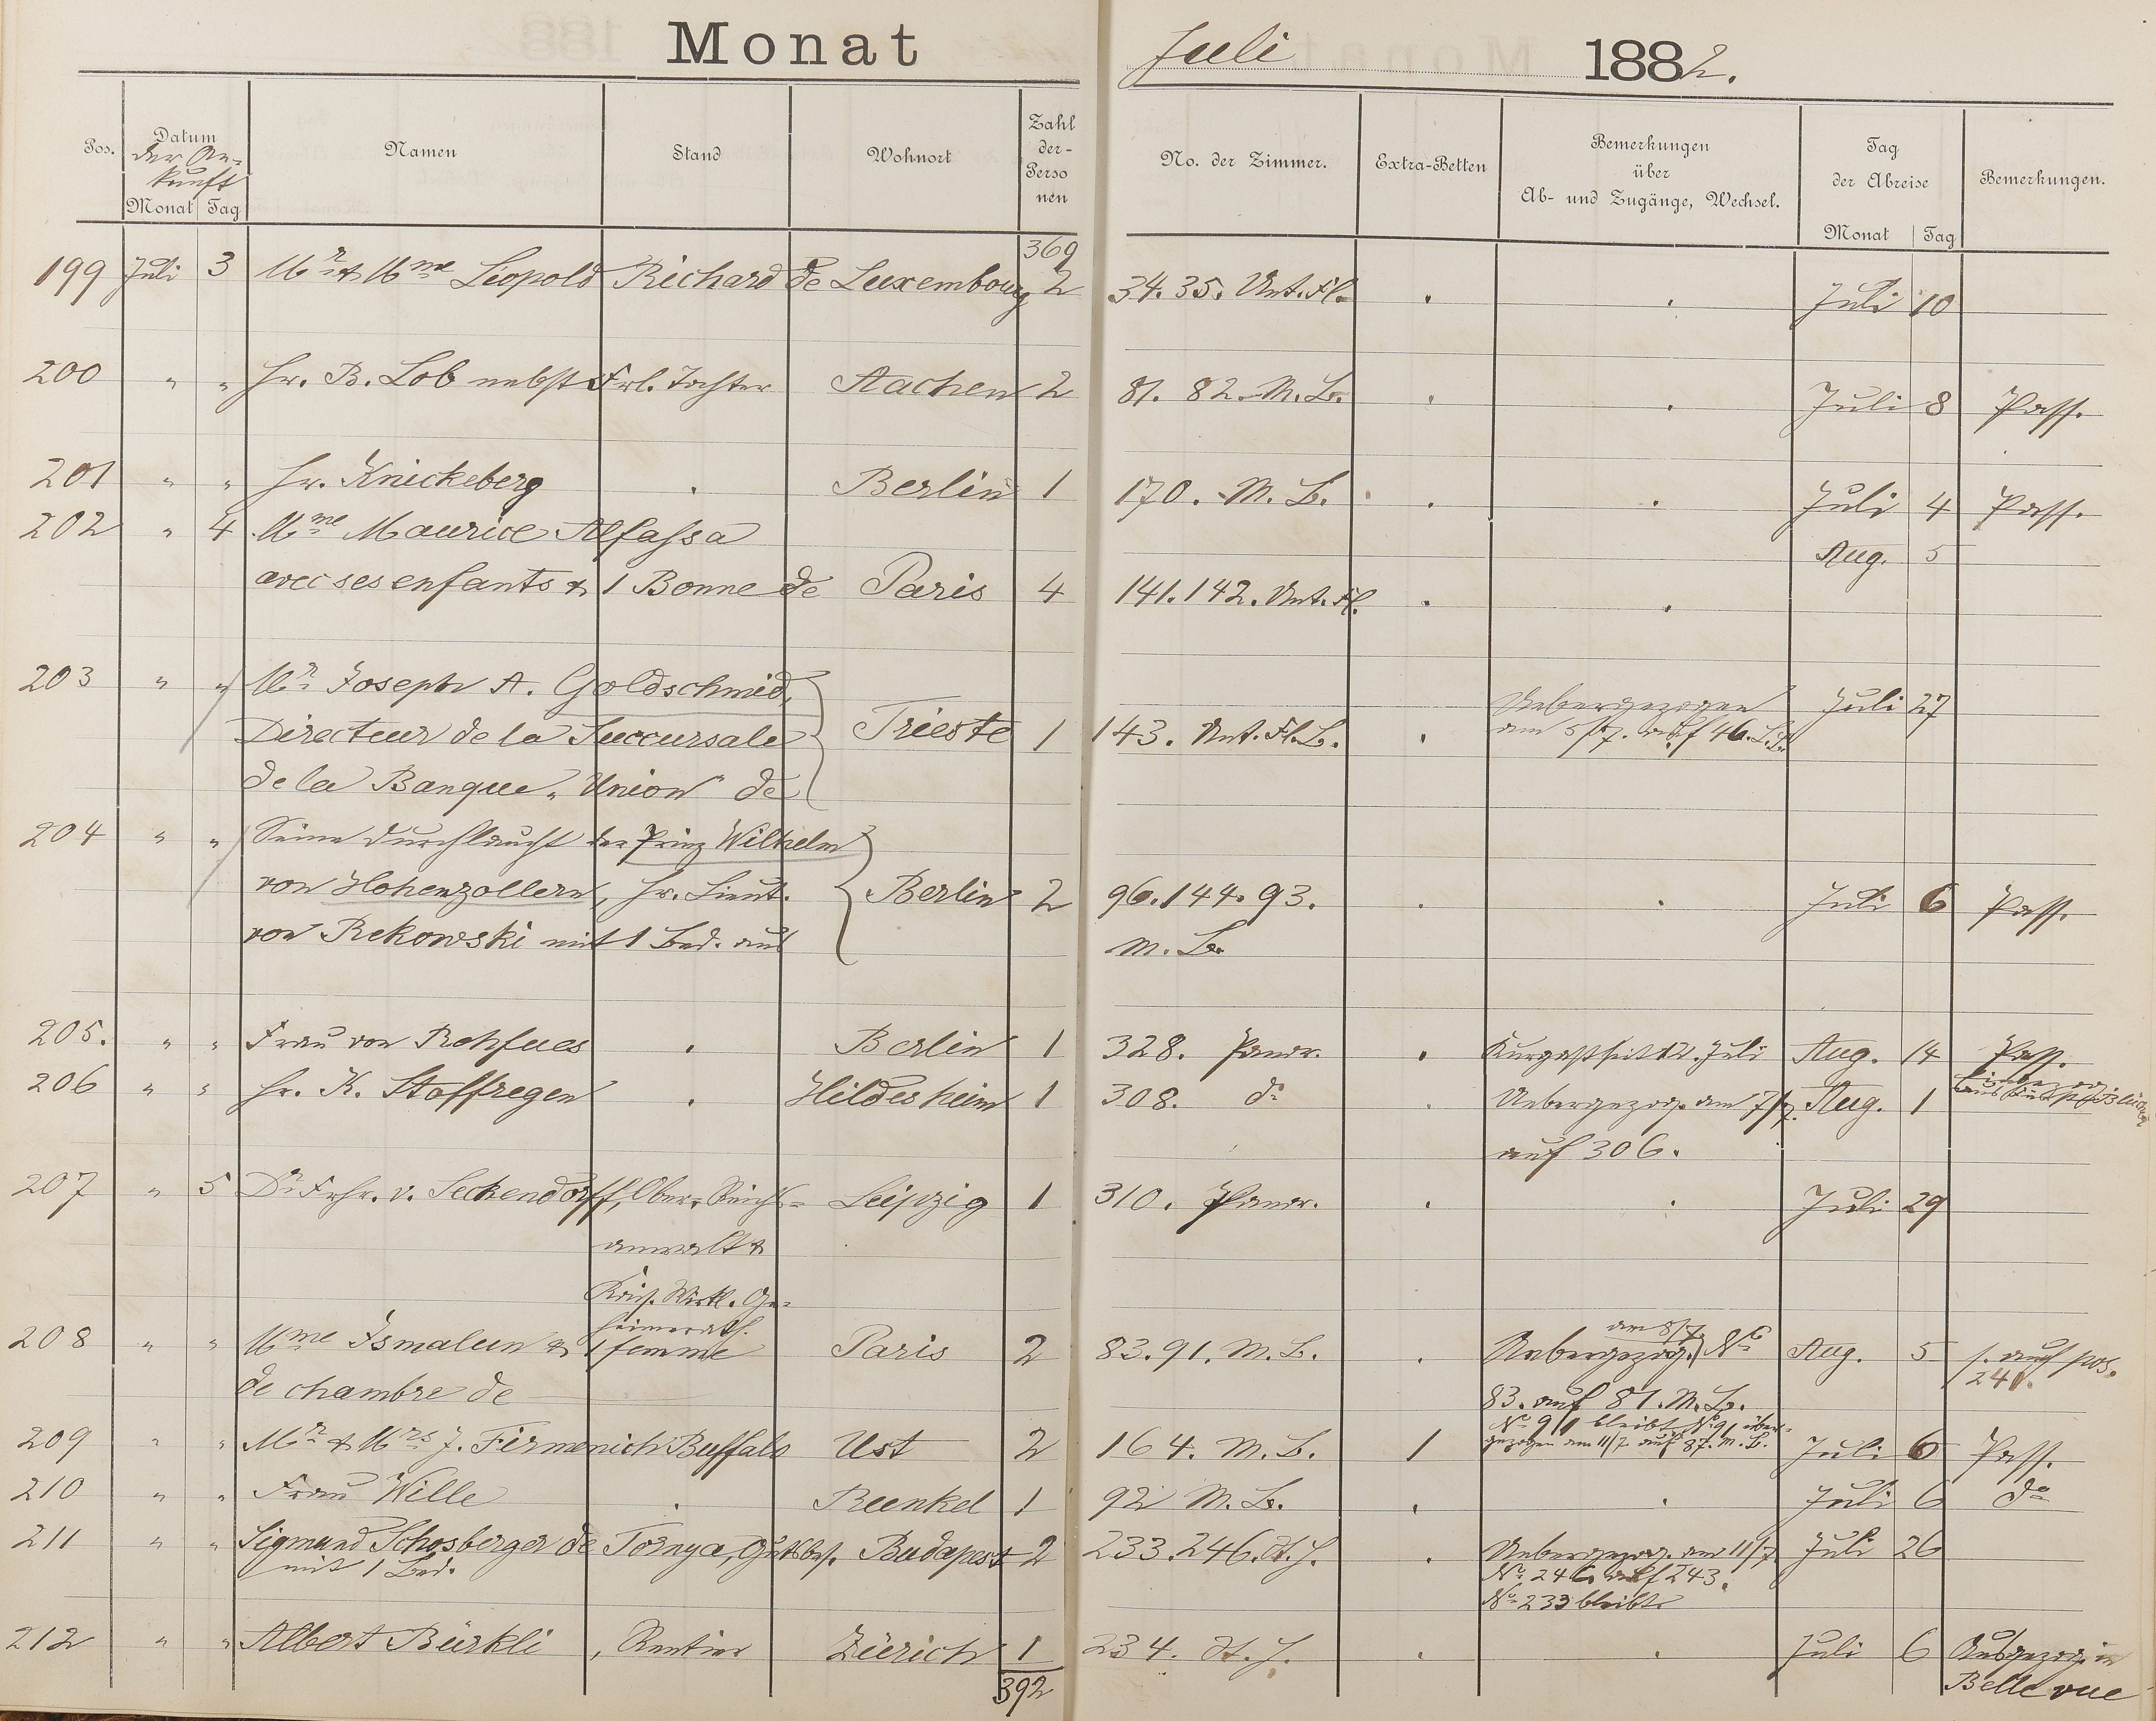 Monat Juli 1882.
Pos. Datum der Ankunft Monat Tag Namen Stand Wohnort Zahl der Personen No. der Zimmer. Extra-Betten Bemerkungen über Ab- und Zugänge, Wechsel. Tag der Abreise Monat Tag Bemerkungen.
369
199 Juli 3 Mr & Mme Leopold Richard de Luxembourg 2 34. 35. Unt. Fl. . . Juli 10
200 " " Hr. B. Lob nebst Frl. Tochter Aachen 2 81. 82. M. B. . . Juli 8 Pass.
201 " " Hr. Knickeberg . Berlin 1 170. M. B. . . Juli 4 Pass.
202 " 4 Mme Maurice Alfassa Aug. 5
avec ses enfants & 1 Bonne de Paris 4 141. 142. Unt. Fl. . .
203 " " Mr Joseph A. Goldschmied, Uebergezogen Juli 27
Directeur de la Succursale Trieste 1 143. Unt. Fl. B. . am 5/7. auf 46.
de la Banque "Union" de
204 " " Seine Durchlaucht der Prinz Wilhelm
von Hohenzollern, Hr. Lieut. Berlin 2 96. 144. 93. . . Juli 6 Pass.
von Rekowski mit 1 Bed. aus M. B.
205. " " Frau von Rehfues . Berlin 1 328. Panor. . Kurgast seit 12. Juli Aug. 14 Pass.
206 " " Hr. K. Staffregen . Hildesheim 1 308. do . Uebergezog. am 7/7. Aug. 1
auf 306.
207 " 5 Dr Frhr. v. Seckendorff, Ober-Reichs- Leipzig 1 310. Panor. . . Juli 29
anwalt &
Kais. Wirkl. Ge-
heimerath.
208 " " Mme Ismalun & 1 femme Paris 2 83. 91. M. B. . Uebergezog. am 8/7 No Aug. 5 s. auf pos. 241.
de chambre de 83. auf 81. M. B.
No 91 bleibt, No 91 über-
209 " " Mr & Mrs J. Firmenich Buffalo Ust 2 164. M. B. 1 gezogen am 11/7 auf 87. M. B. Juli 6 Pass.
210 " " Frau Wille . Runkel 1 92 M. B. . . Juli 6 do
211 " " Sigmund Schosberger de Tornya, Gutsbes. Budapest 2 233. 246. . Uebergezog. am 11/7 Juli 26
mit 1 Bed. No 246 auf 243.
No 233 bleibt
212 " " Albert Bürkli, Rentier Zürich 1 234. . . Juli 6 Ausgezog. in
392 Bellevue